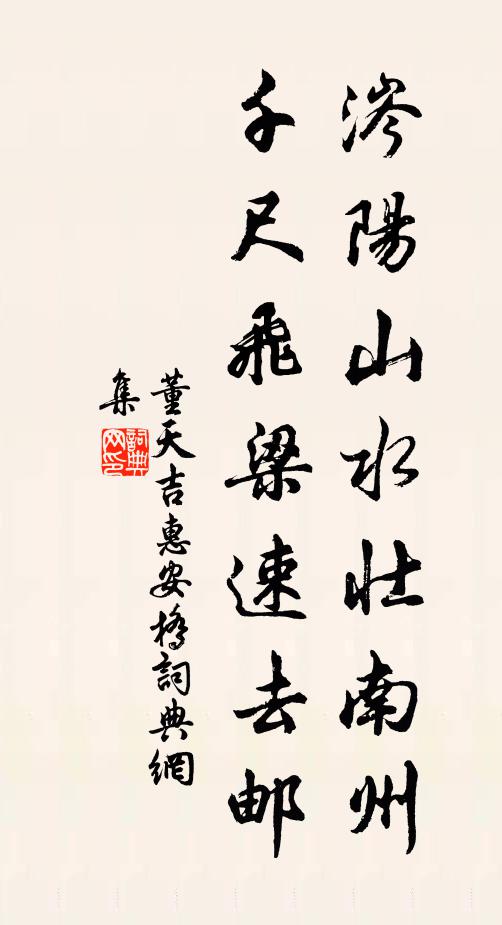 涔陽山水壮南州
千尺飛梁速去邮
董天吉惠安橋詞典網
集
詞典
网印